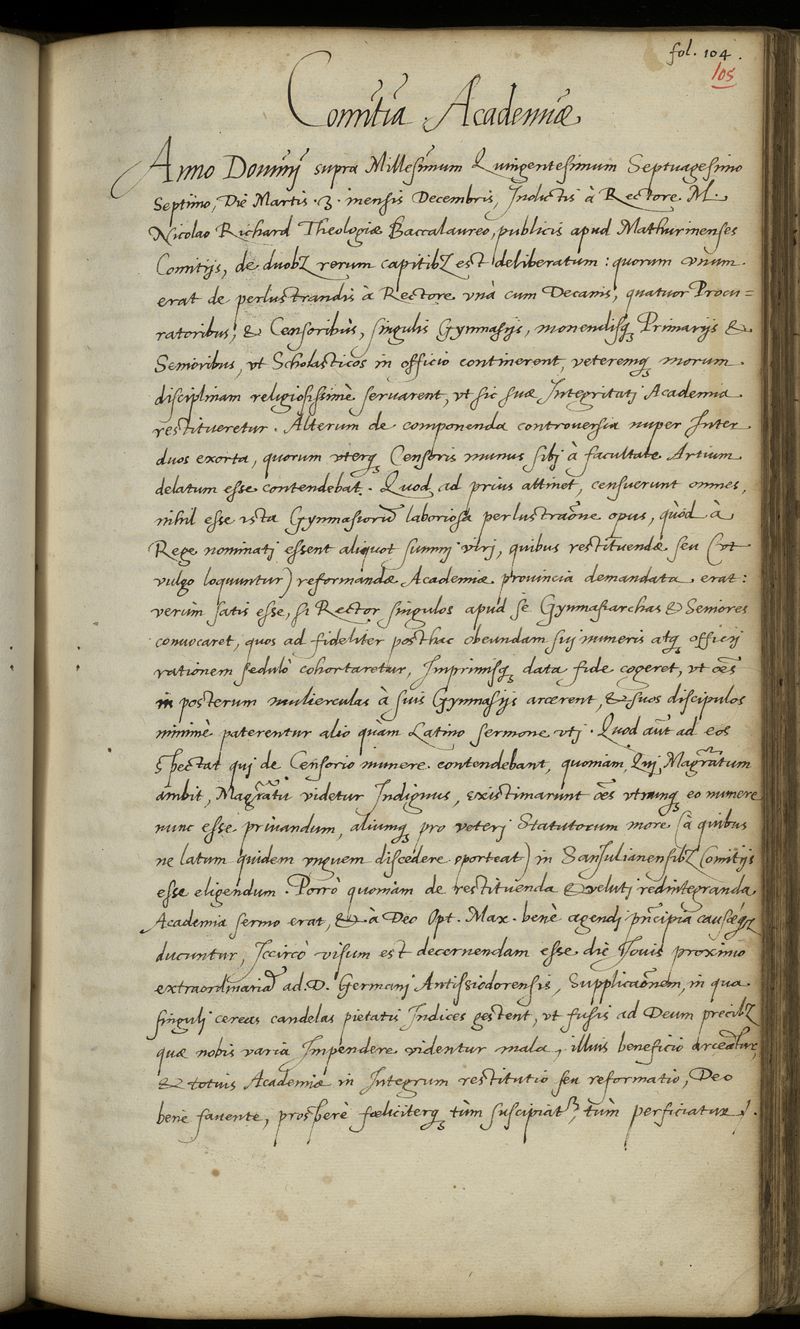 fol. 104.
105
Comitia Academiæ
Anno Dominj supra Millesimum Quingentesimum Septuagesimo
Septimo, Die Martis .3. mensis Decembris, Indictis à Rectore M.
Nicolao Richard Theologiæ Baccalaureo, publicis apud Mathurinenses
Comitijs, de duobꝫ rerum capitibꝫ est deliberatum : quorum vnum
erat de perlustrandis à Rectore vnà cum Decanis, quatuor Procu=
ratoribus, & Censoribus, singulis Gymnasijs, monendisqꝫ Primarijs &
Senioribus, vt Scholasticos in officio continerent, veteremqꝫ morum
disciplinam religiosissimè seruarent, vt sic suæ Integritatj Academia
restitueretur . Alterum de componenda controuersia nuper Inter
duos exorta, quorum vterqꝫ Censoris munus sibj à facultate Artium
delatum esse contendebat . Quod ad prius attinet, censuerunt omnes,
nihil esse ista Gymnasiorū laboriosa perlustraōne opus, quòd à
Rege nominatj essent aliquot summj virj, quibus restituendæ seu (vt
vulgo loquuntur) reformandæ Academiæ prouincia demandata erat :
verùm satis esse, si Rector singulos apud se Gymnasiarchas & Seniores
conuocaret, quos ad fideliter posthac obeundam sui muneris atqꝫ officij
rationem sedulò cohortaretur, Imprimisqꝫ data fide cogeret, vt oēs
in posterum mulierculas à suis Gymnasijs arcerent, & suos discipulos
minimè paterentur alio quàm Latino sermone vtj . Quod aūt ad eos
spectat quj de Censorio munere contendebant, quoniam, Quj Magrātum
ambit, Magrātu videtur Indignus, existimarunt oēs vtrumqꝫ eo munere
nunc esse priuandum, aliumqꝫ pro veterj Statutorum more (à quibus
ne latum quidem vnguem discedere oporteat) in SanJulianensibꝫ Comitijs
esse eligendum . Porrò quoniam de restituenda & veluti redintegranda
Academia sermo erat, & à Deo Opt. Max. benè agendj prīcipia causæqꝫ
ducuntur, Iccircò visum est decernendam esse die Jouis proximo
extraordinariā ad .D. Germanj Antissiodorensis, Supplicaōnem, in qua
singulj cereas candelas pietatis Indices gestent, vt fusis ad Deum precibꝫ
quæ nobis varia Impendere videntur mala, illius beneficio arceātur,
& totius Academiæ in Integrum restitutio seu reformatio, Deo
bene fauente, prosperè fœliciterqꝫ tùm suscipiatr, tùm perficiatur .